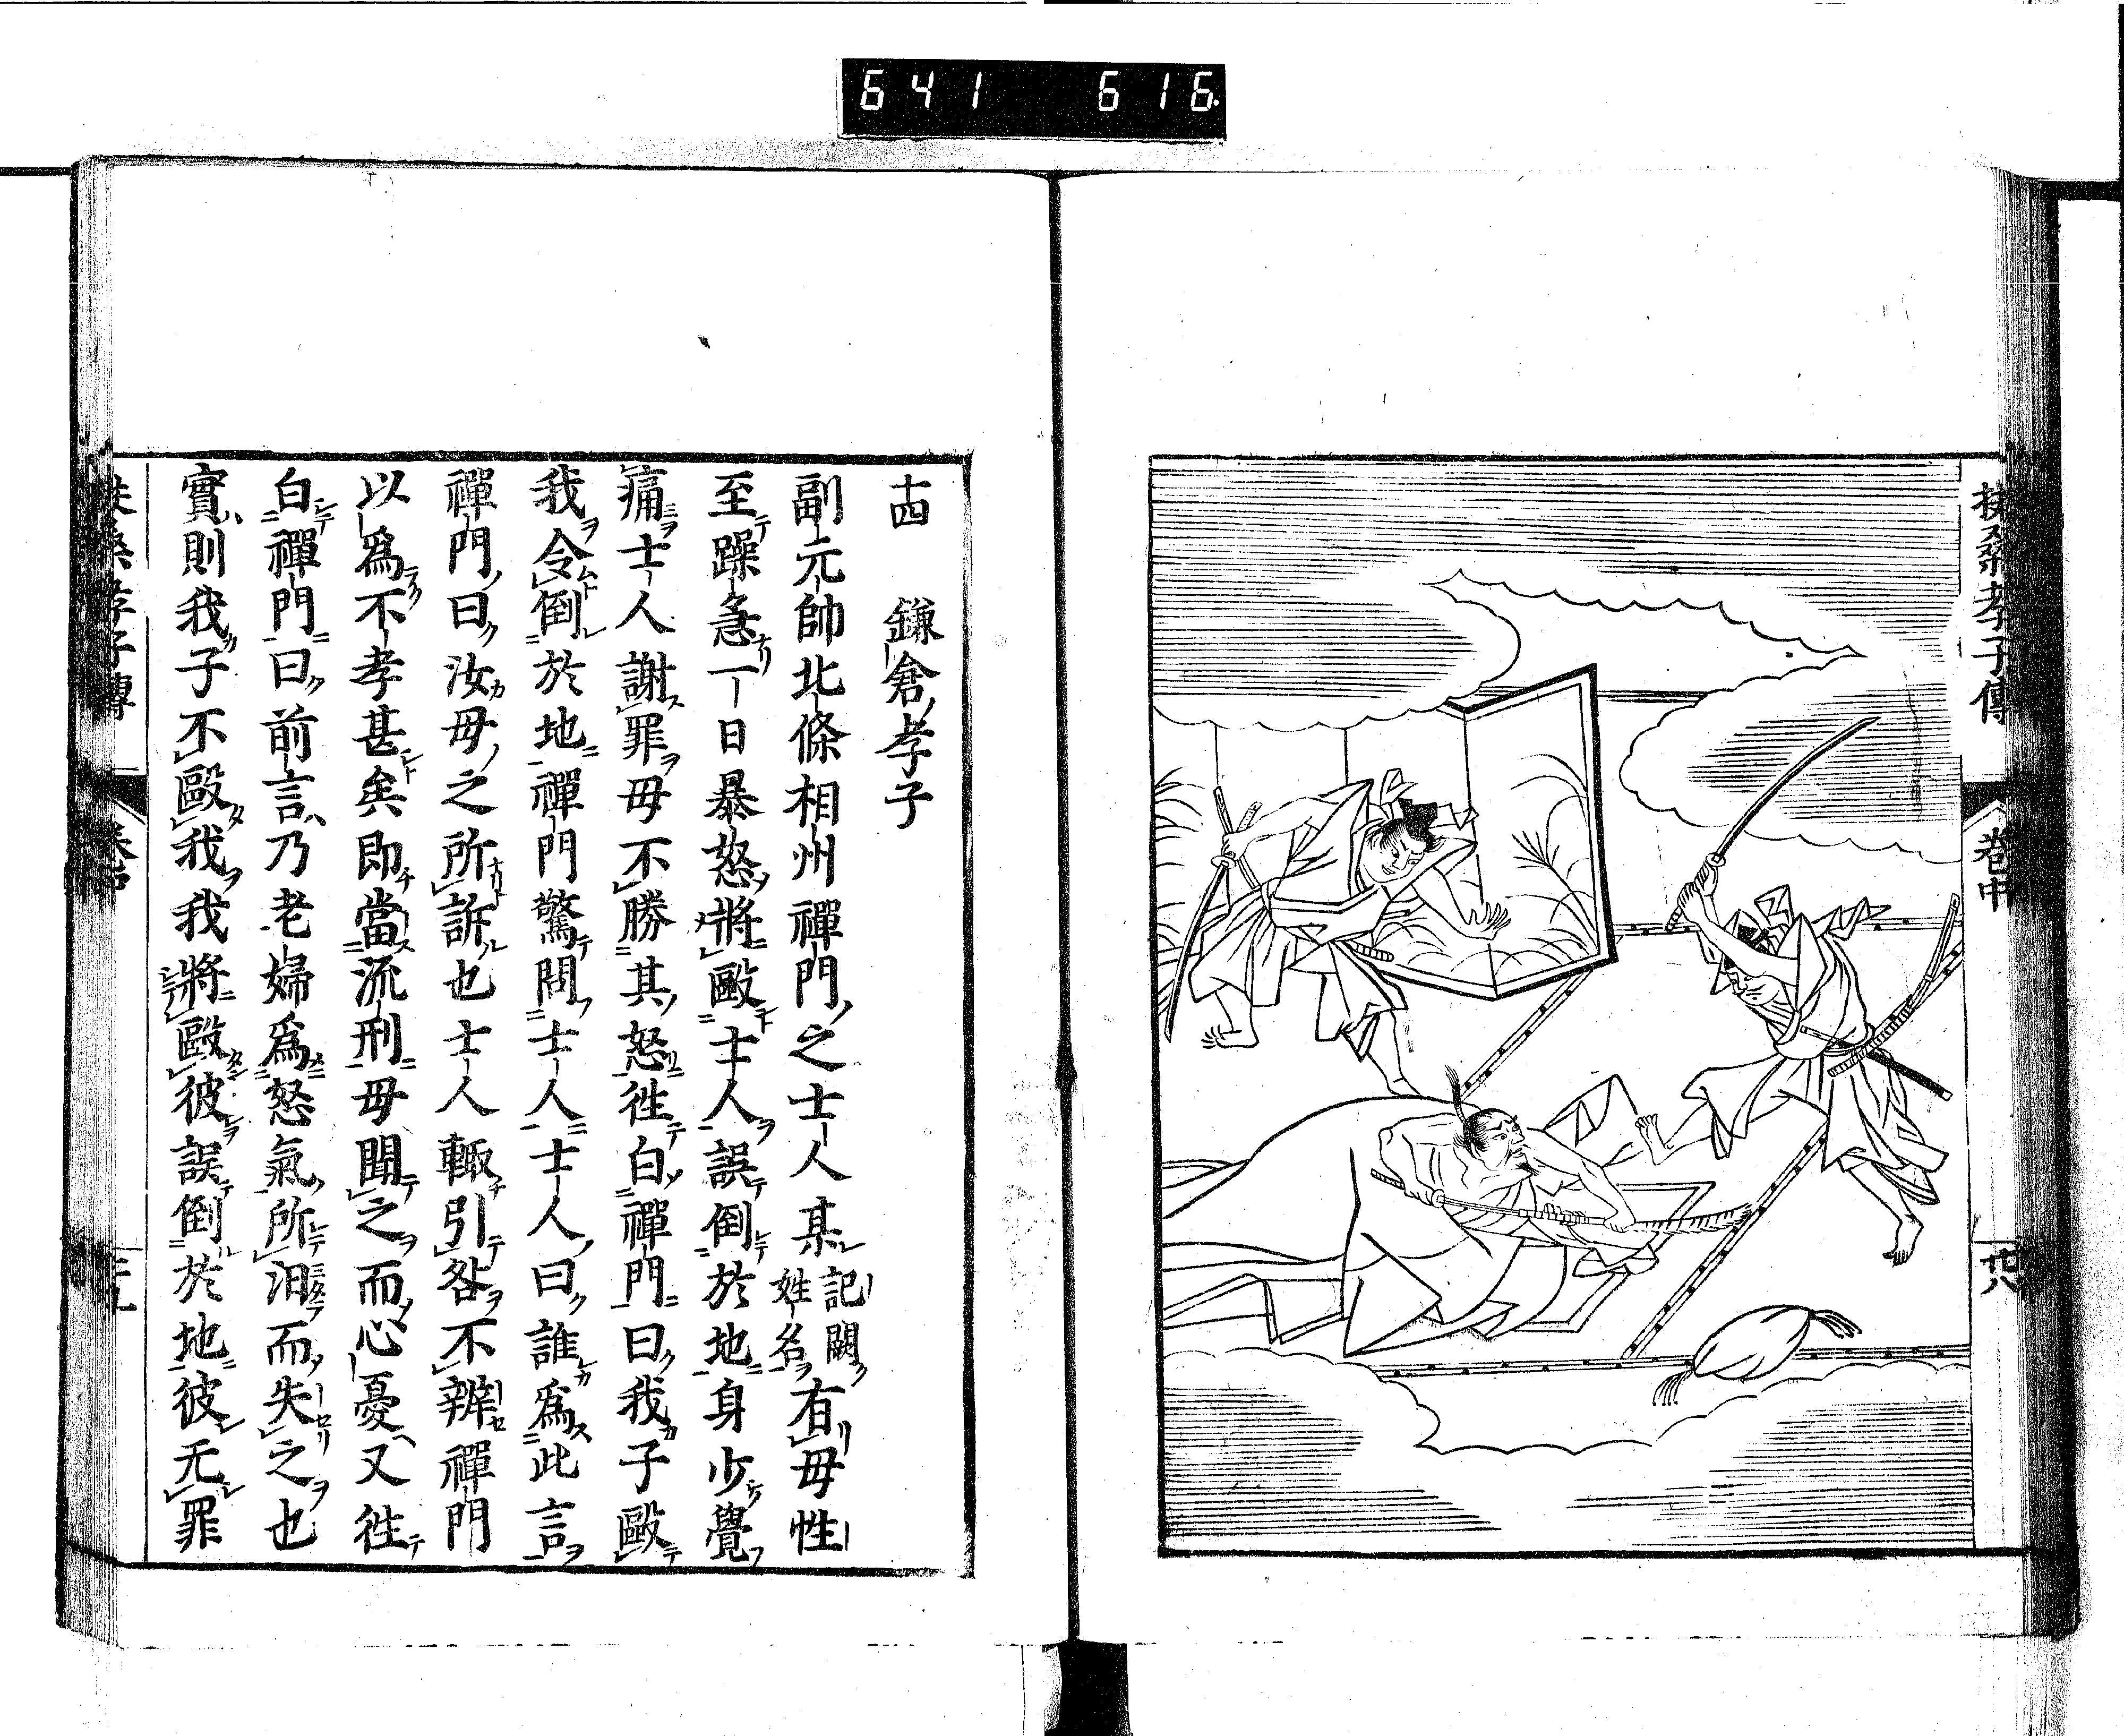 641 616.
扶桒孝子傳 卷中 廿八
十四 鎌倉孝子
副元帥北條相州禪門之士人某記闕姓名有母性
至躁急一日暴怒將毆士人誤倒於地身少覺
痛士人謝罪母不勝其怒徃白禪門曰我子毆
我令倒於地禪門驚問士人士人曰誰爲此言
禪門曰汝母之所訴也士人輙引咎不辨禪門
以爲不孝甚矣即當流刑母聞之而心憂又徃
白禪門曰前言乃老婦爲怒氣所汨而失之也
實則我子不毆我我將毆彼誤倒於地彼无罪